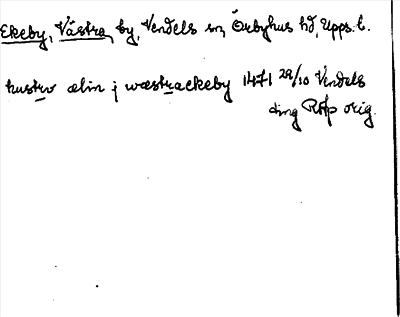 Ekeby, Västra, by, Vendels sn, Örbyhus hd, Upps. l.
hustrv ælin j wæstraekeby 1471 29/10 Vendels
ding RAp orig.